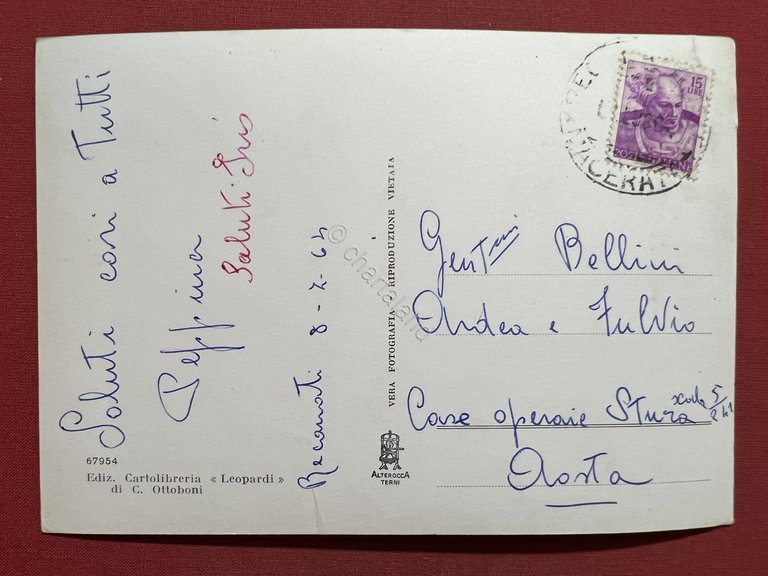 Saluti cari a Tutti
Peppina
Saluti Iris
Recanati 8-7-65
67954
Ediz. Cartolibreria « Leopardi »
di C. Ottoboni
VERA FOTOGRAFIA - RIPRODUZIONE VIETATA
ALTEROCCA
TERNI
© chartaland
15
LIRE
POSTE ITALIANE
MACERATA
Gent.mi Bellini
Ardea e Fulvio
Case operaie Stura scala 5/241
Aosta